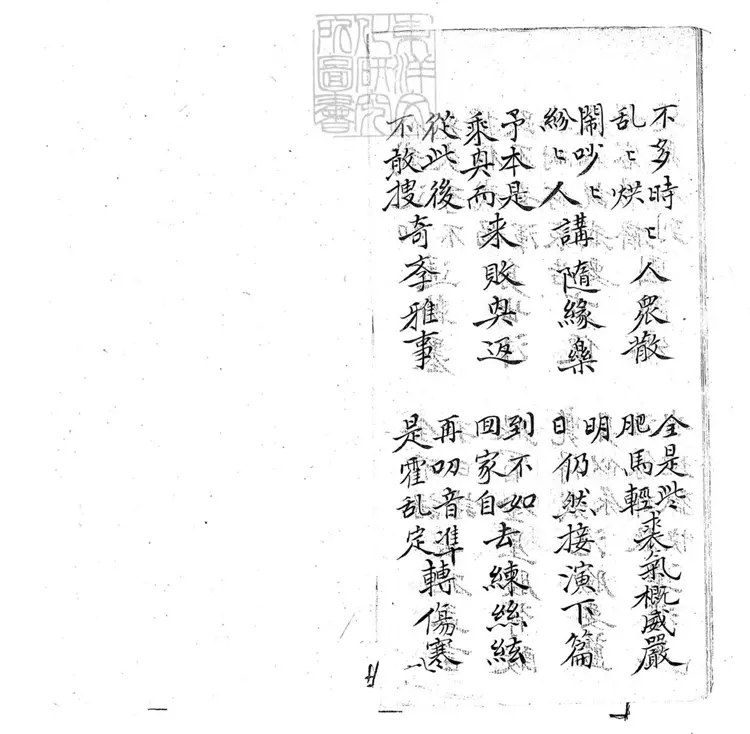 東洋文化研究所圖書
不多時乱〻烘〻人衆散
全是些肥馬輕裘氣概威嚴
鬧吵〻紛〻人講隨緣樂
明日仍然接演下篇
予本是乘興而来敗興返
到不如回家自去練絲絃
從此後不敢搜奇考雅事
再叨音準是霍乱定轉傷寒